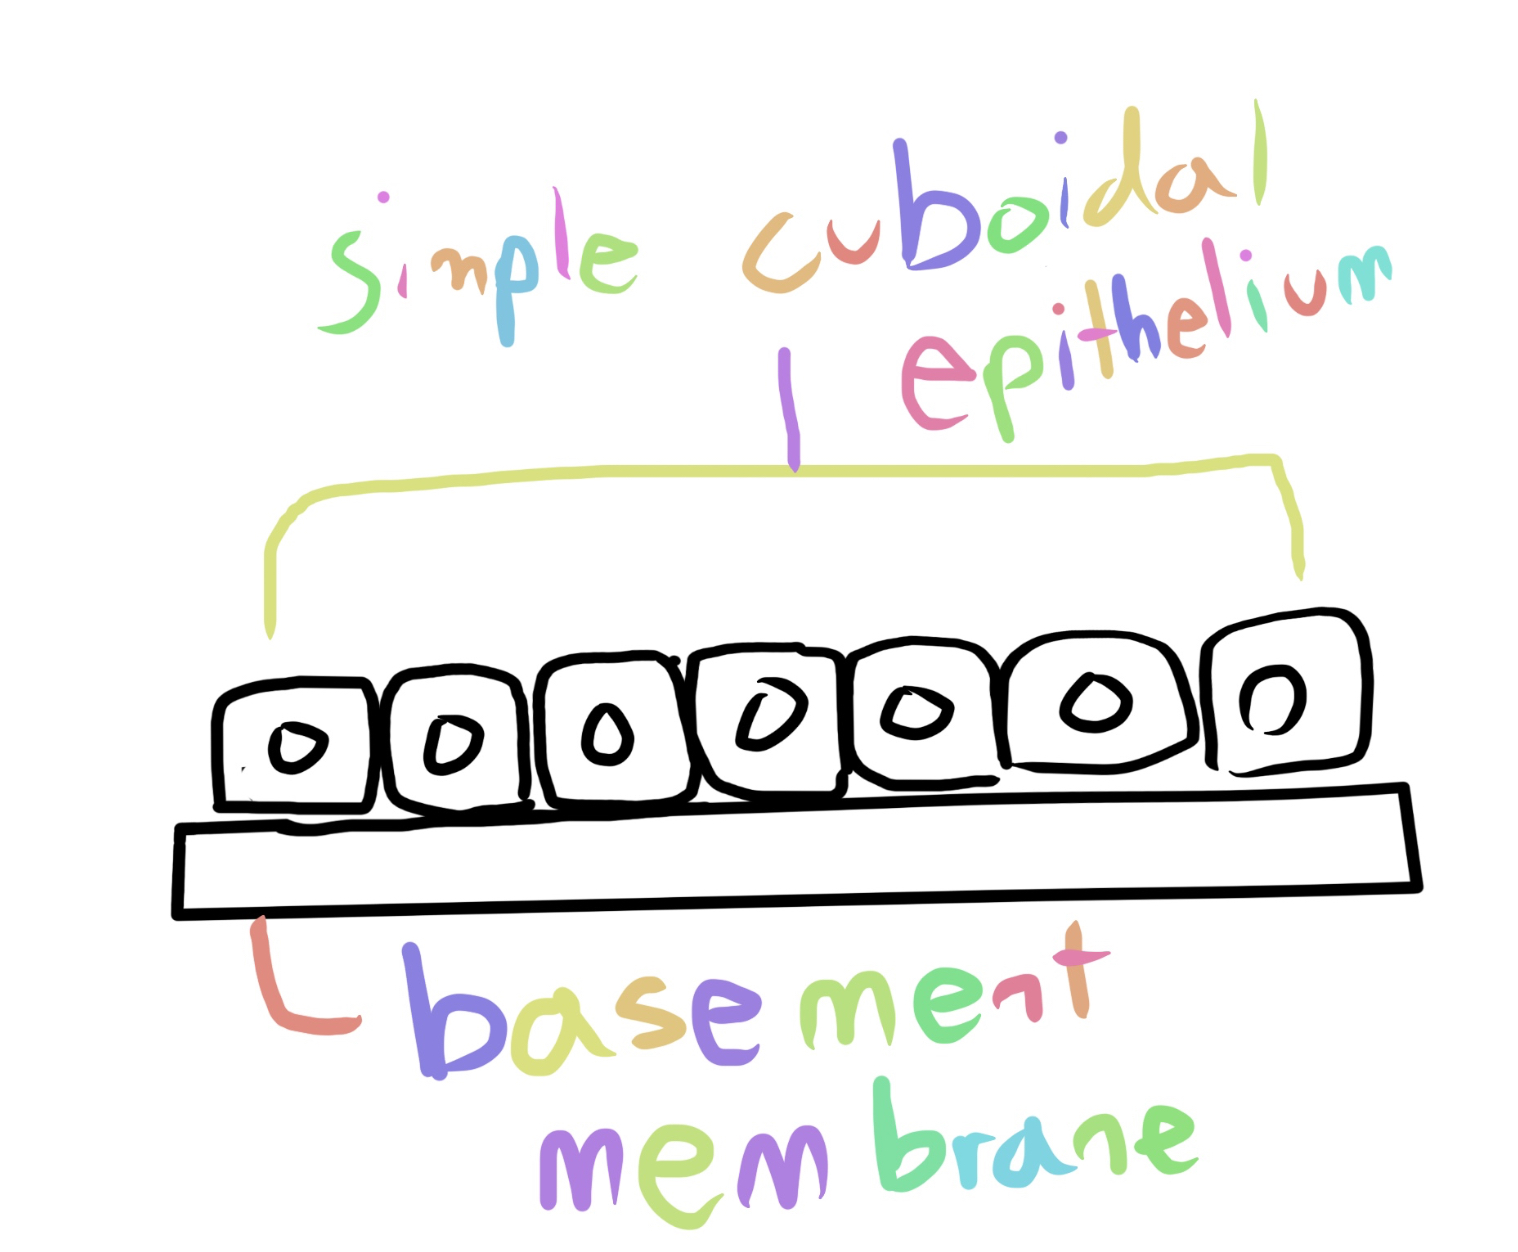 simple cuboidal
epithelium
basement
membrane